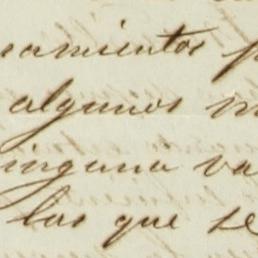 samientos p
algunos m
ninguna va
las que se